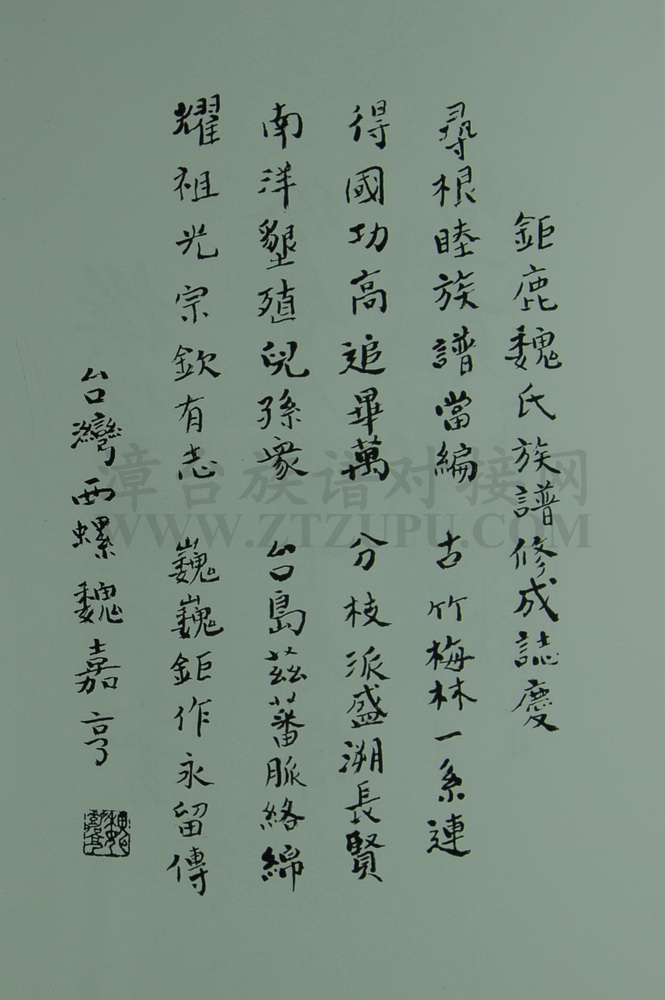 鉅鹿魏氏族譜修成誌慶
尋根睦族譜當編 古竹梅林一系連
得國功高追畢萬 分枝派盛溯長賢
南洋墾殖兒孫衆 台島茲蕃脈絡綿
耀祖光宗欽有志 巍巍鉅作永留傳
台灣西螺魏嘉亨
漳台族谱对接网
WWW.ZTZUPU.COM